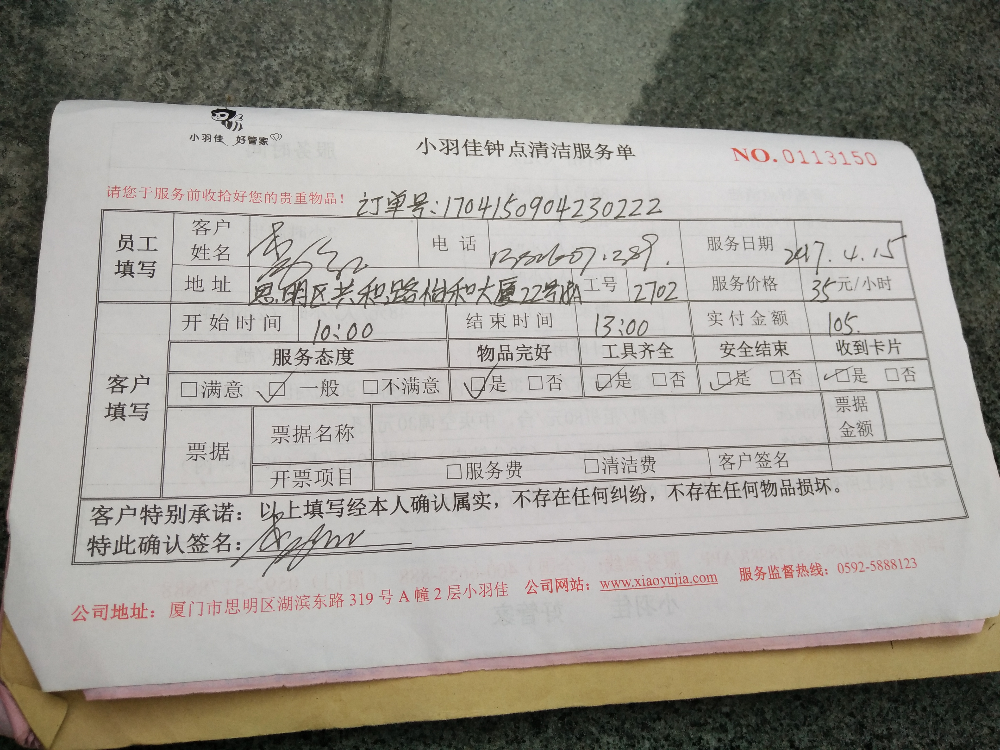 小羽佳 好管家
小羽佳钟点清洁服务单
NO.0113150
请您于服务前收拾好您的贵重物品!
订单号:1704150904230222
员工填写
客户姓名
电话
服务日期 2017.4.15
地址 思明区共和路伯和大厦22号
工号 2702
服务价格 35元/小时
客户填写
开始时间 10:00 结束时间 13:00 实付金额 105.
服务态度 物品完好 工具齐全 安全结束 收到卡片
□满意 □一般 □不满意 □是 □否 □是 □否 □是 □否 □是 □否
票据 票据名称 票据金额
开票项目 □服务费 □清洁费 客户签名
客户特别承诺:以上填写经本人确认属实,不存在任何纠纷,不存在任何物品损坏。
特此确认签名:
公司地址:厦门市思明区湖滨东路319号A幢2层小羽佳 公司网站:www.xiaoyujia.com 服务监督热线:0592-5888123